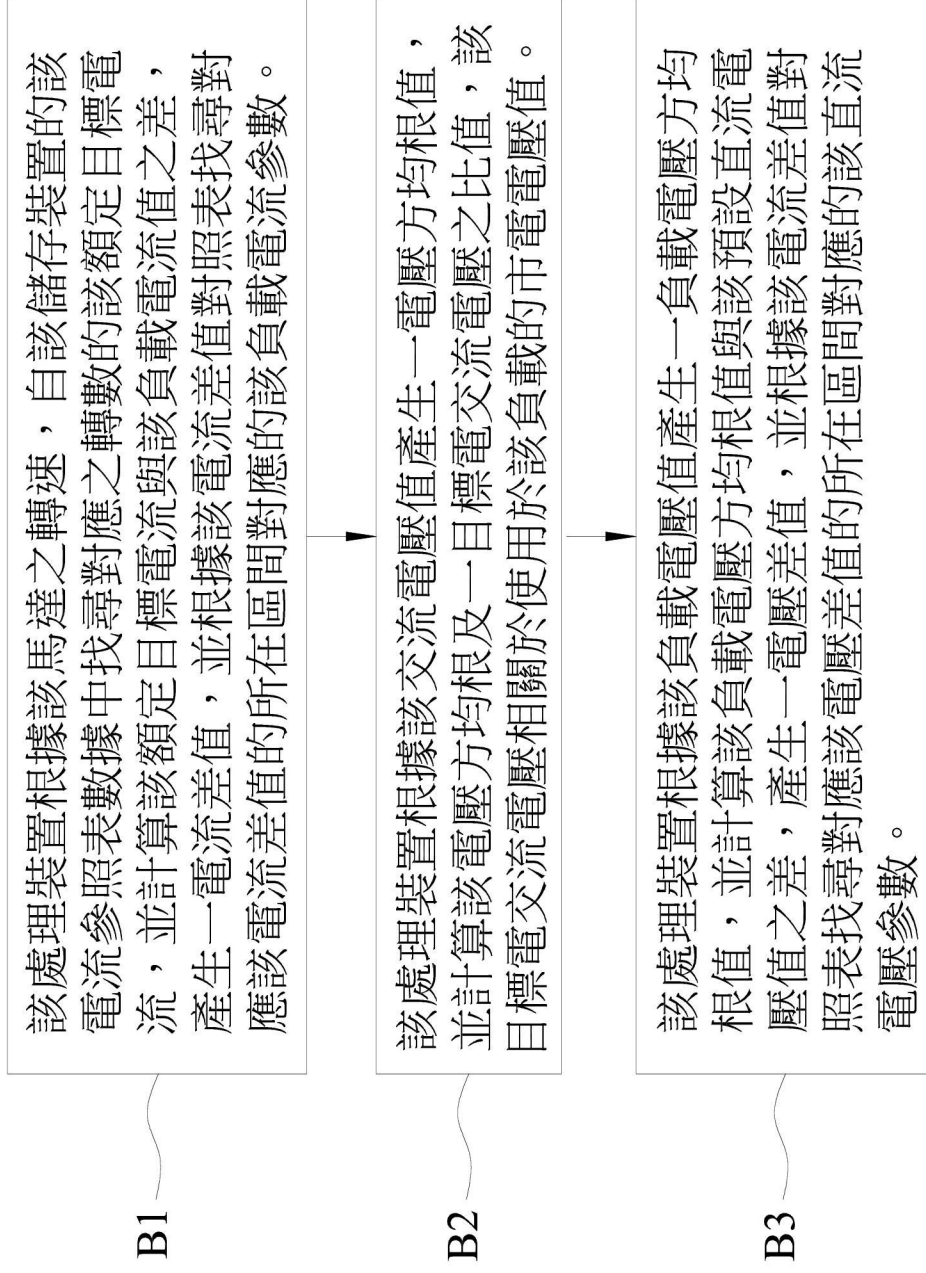 B1
該處理裝置根據該馬達之轉速，自該儲存裝置的該
電流參照表數據中找尋對應之轉數的該額定目標電
流，並計算該額定目標電流與該負載電流值之差，
產生一電流差值，並根據該電流差值對照表找尋對
應該電流差值的所在區間對應的該負載電流參數。
B2
該處理裝置根據該交流電壓值產生一電壓方均根值，
並計算該電壓方均根及一目標電交流電壓之比值，該
目標電交流電壓相關於使用於該負載的市電電壓值。
B3
該處理裝置根據該負載電壓值產生一負載電壓方均
根值，並計算該負載電壓方均根值與該預設直流電
壓值之差，產生一電壓差值，並根據該電流差值對
照表找尋對應該電壓差值的所在區間對應的該直流
電壓參數。